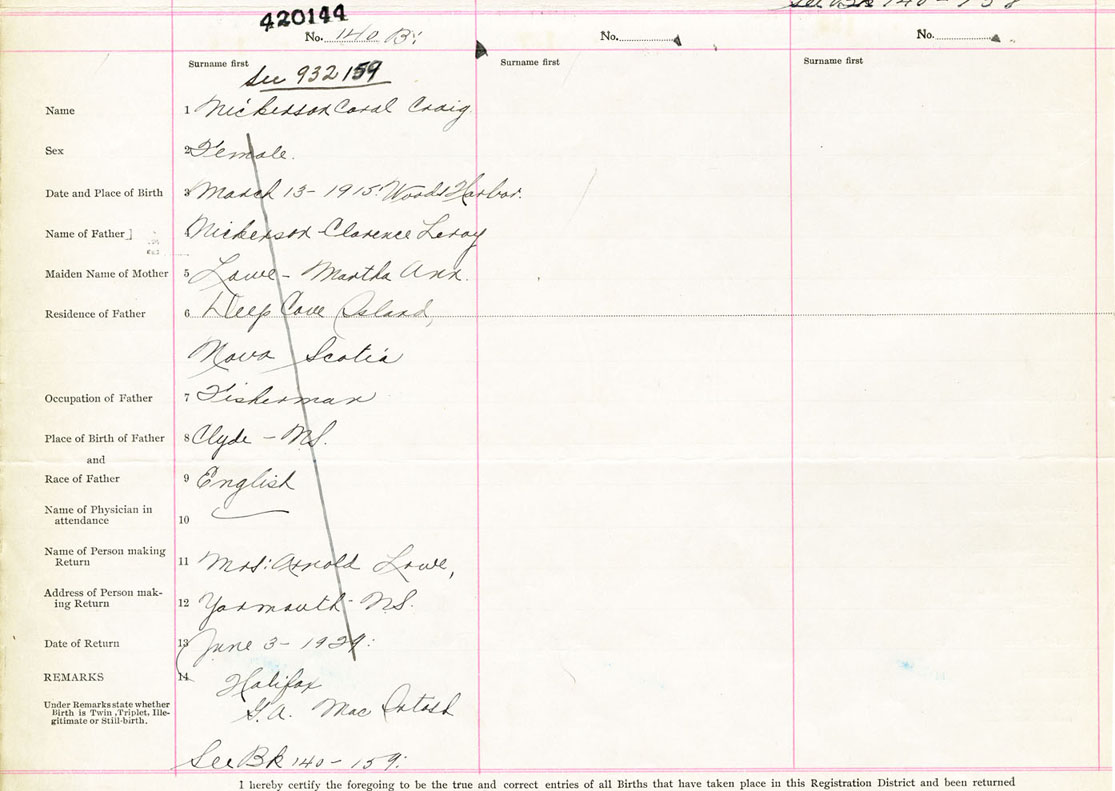 420144
See Bk 140-158
No. 140 B:
No.
No.
Surname first
Surname first
Surname first
See 932159
Name 1 Nickerson Coral Craig
Sex 2 Female.
Date and Place of Birth 3 March 13 - 1915: Woods Harbor.
Name of Father] 4 Nickerson - Clarence Leroy
Maiden Name of Mother 5 Lowe - Martha Ann.
Residence of Father 6 Deep Cove Island,
Nova Scotia
Occupation of Father 7 Fisherman
Place of Birth of Father 8 Clyde - N.S.
and
Race of Father 9 English
Name of Physician in
attendance 10
Name of Person making
Return 11 Mrs: Arnold Lowe,
Address of Person mak-
ing Return 12 Yarmouth - N.S.
Date of Return 13 June 3 - 1929:
REMARKS 14 Halifax
Under Remarks state whether
Birth is Twin, Triplet, Ille-
gitimate or Still-birth.
G.A. Mac Intosh
See Bk 140 - 159:
I hereby certify the foregoing to be the true and correct entries of all Births that have taken place in this Registration District and been returned